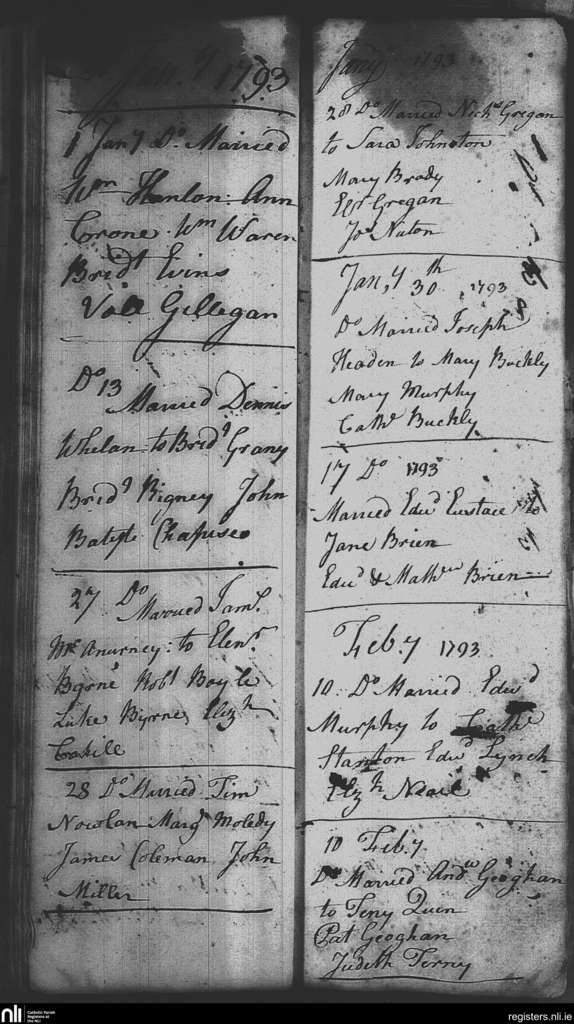 Jan.y 1793
1 Jany Do. Married
Wm Hanlon Ann
Corone. Wm Waren
Bridt Evins
Vall Gillegan
Do 13
Married Dennis
Whelan to Bridt Grany
Bridt Rigney John
Batist
27 Do
Married Jams.
to Elenr.
Byrne Robt Boyle
Luke Byrne, Elizh
Cahill
28 Do Married Tim
Nowlan Margt Moledy
James Coleman John
Miller
Jany 1793
28 Do Married Nichs Gregan
to Sara Johnston
Mary Brady
Gregan
Jos Naton
Jan,y 30th 1793
Do Married Joseph
Headen to Mary Buckly
Mary Murphy
Cathe Buckly
17 Do 1793
Married Edwd Eustace
Jane Brien
Edwd & Mathew Brien
Feb.y 1793
10 Do Married Edwd
Murphy to Cathe
Stanton Edwd Lynch
Elizh Neale
10 Feb.y
Do Married Andw Geoghan
to Teny Quen
Pat Geoghan
Judeth Terney
nli
Catholic Parish
Registers at
the NLI
registers.nli.ie